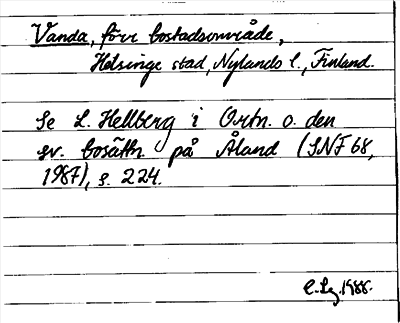 Vanda, förr bostadsområde,
Helsinge stad, Nylands l., Finland.
Se L. Hellberg i Ortn. o. den
sv. bosättn. på Åland (SNF 68,
1987), s. 224.
1988.